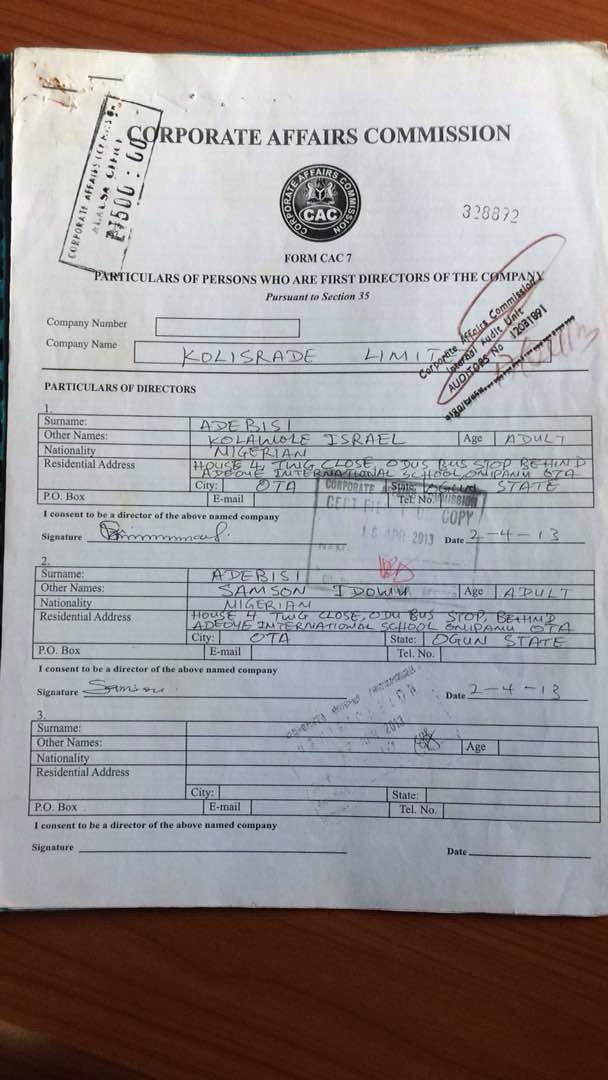 CORPORATE AFFAIRS COMMISSION
CORPORATE AFFAIRS COMMISSION
CAC
328872
FORM CAC 7
PARTICULARS OF PERSONS WHO ARE FIRST DIRECTORS OF THE COMPANY
Pursuant to Section 35
Corporate Affairs Commission
Internal Audit Unit
AUDITORS No
Company Number
Company Name KOLISRADE LIMIT
PARTICULARS OF DIRECTORS
1.
Surname: ADEBISI
Other Names: KOLAWOLE ISRAEL Age ADULT
Nationality NIGERIAN
Residential Address HOUSE 4 TWG CLOSE, ODUS BUS STOP BEHIND
ADEOYE INTERNATIONAL SCHOOL ONIPANU OTA
City: OTA State: OGUN STATE
P.O. Box E-mail Tel. No.
CORPORATE
COPY
18 APR 2013
I consent to be a director of the above named company
Signature Date 2-4-13
2.
Surname: ADEBISI
Other Names: SAMSON IDOWU Age ADULT
Nationality NIGERIAN
Residential Address HOUSE 4 TWG CLOSE, ODU BUS STOP, BEHIND
ADEOYE INTERNATIONAL SCHOOL ONIPANU OTA
City: OTA State: OGUN STATE
P.O. Box E-mail Tel. No.
I consent to be a director of the above named company
Signature Samson Date 2-4-13
3.
Surname:
Other Names: Age
Nationality
Residential Address
City: State:
P.O. Box E-mail Tel. No.
I consent to be a director of the above named company
Signature Date